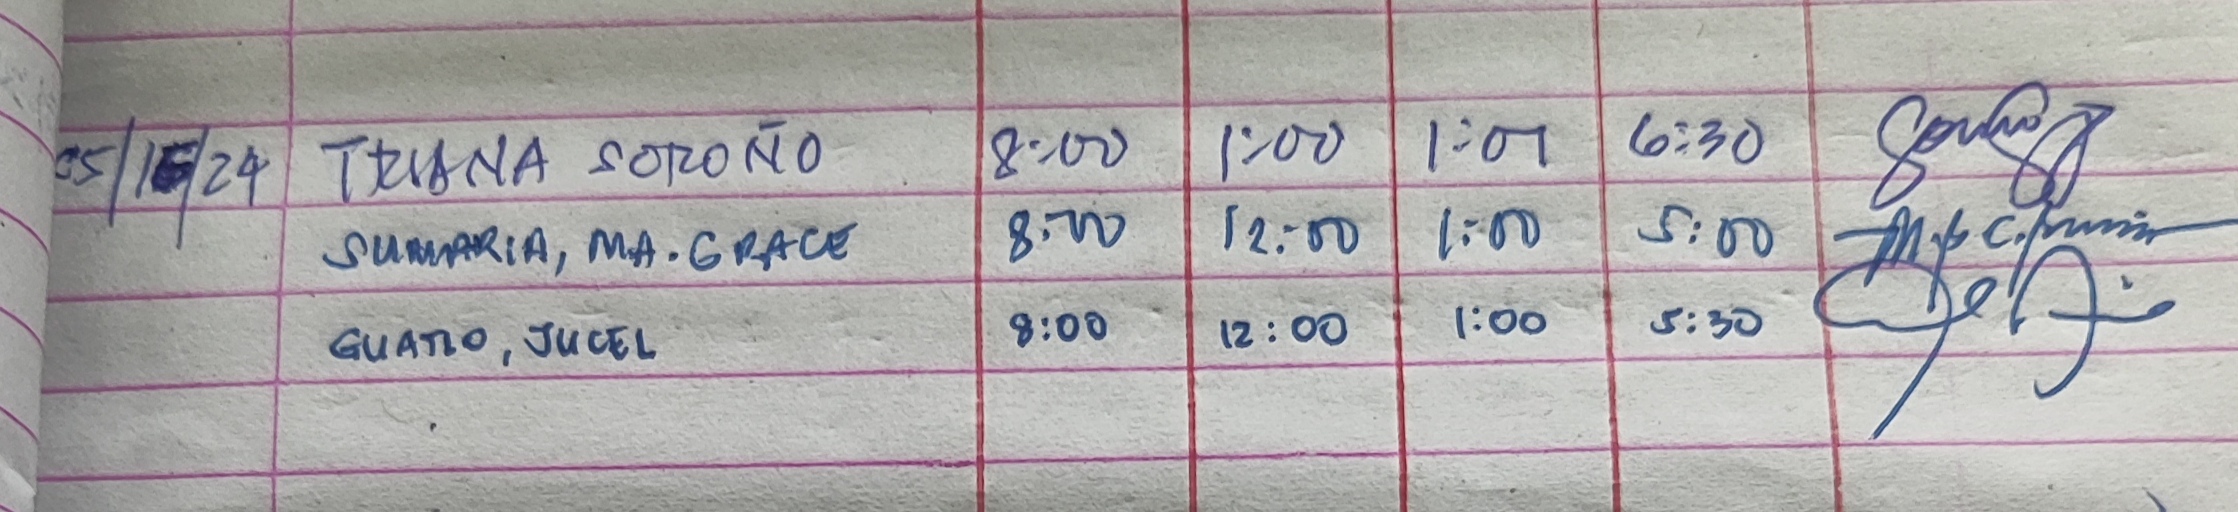 05/15/24 TRIANA SOROÑO 8:00 1:00 1:01 6:30
SUMARIA, MA. GRACE 8:00 12:00 1:00 5:00
GUATLO, JUCEL 8:00 12:00 1:00 5:30